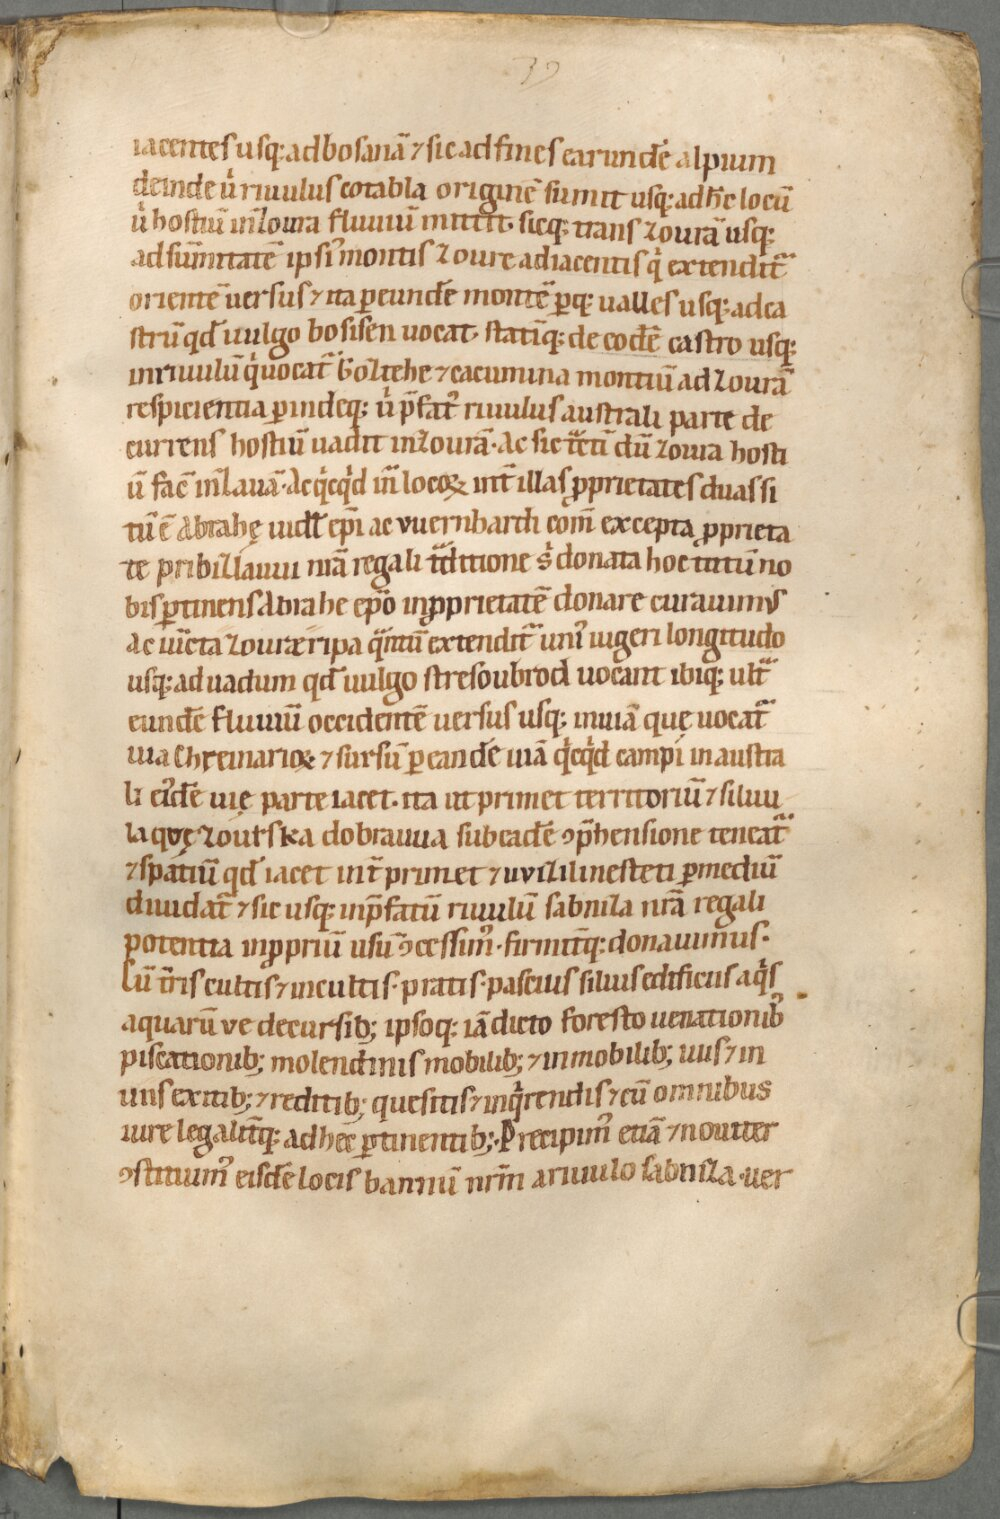 39
iacentes usq; ad bosanā ⁊ sic ad fines earundē alpium
deinde ů riuulus cotabla originē sumit usq; ad hc̄ locū
ů hostiū in zoura fluuiū mittit. sicq; trans zourā usq;
ad sūmitatē ipsi᾽ montis zoure adiacentis q̇ extendit᷑
orientē uersus ⁊ ita ꝑ eundē montē ꝑq; ualles usq; ad ca
strū qd̄ uulgo bosisen uocat᷑. statīq; de eodē castro usq;
in riuulū q̇ uocat᷑ Goltche ⁊ cacumina montiū ad zourā
respicientia ꝑindeq; ů p̄fat᾽ riuulus australi parte de
currens hostiū uadit in zourā. Ac sic tētū dū zoura hosti
ū fac̄ in zauā. Ac q̇cq̇d in locoꝝ int̄ illas ꝓprietates duas si
tū ē Abrahę uidl̄ ep̄i ac vuernhardi com̄ excepta ꝓprieta
te pribizlauui nrā regali t᷑ditione s̓ donata hoc totū no
bis ꝑtinens Abrahe ep̄o in ꝓprietatē donare curauimus
Ac iuxta zouræ ripa q᷑ntū extendit᷑ uni᾽ iugeri longitudo
usq; ad uadum qd̄ uulgo stresoubrod uocant ibiq; ult᷑
eundē fluuiū occidentē uersus usq; in uiā quę uocat᷑
uia Chreinarioꝝ ⁊ sursū ꝑ eandē uiā q̇cq̇d campi in austra
li ei᾽dē uię parte iacet. ita ut primet territoriū ⁊ siluu
la quę zourska dobrauua sub eadē ꝯp̄hensione teneat᷑
⁊ spatiū qd̄ iacet int̄ primet ⁊ uvizilinesteti ꝑ mediū
diuidat᷑ ⁊ sic usq; in p̄fatū riuulū sabniza nrā regali
potentia in ꝓpriū usū ꝯcessim᾽. firmit̄q; donauimus.
Cū t̄ris cultis ⁊ incultis. pratis. pascuis siluis edificiis aq̇s
aquarū ve decursib; ipsoq; iā dicto foresto uenationib᾽
piscationib; molendinis mobilib; ⁊ inmobilib; uiis ⁊ in
uiis exitib; ⁊ reditib; quesitis ⁊ inq̇rendis ⁊ cū omnibus
iure legalit̄q; ad hec ꝑtinentib;. Precipim᾽ etiā ⁊ nouiter
ꝯstituim᾽ eisdē locis bannū nr̄m a riuulo sabniza. uer